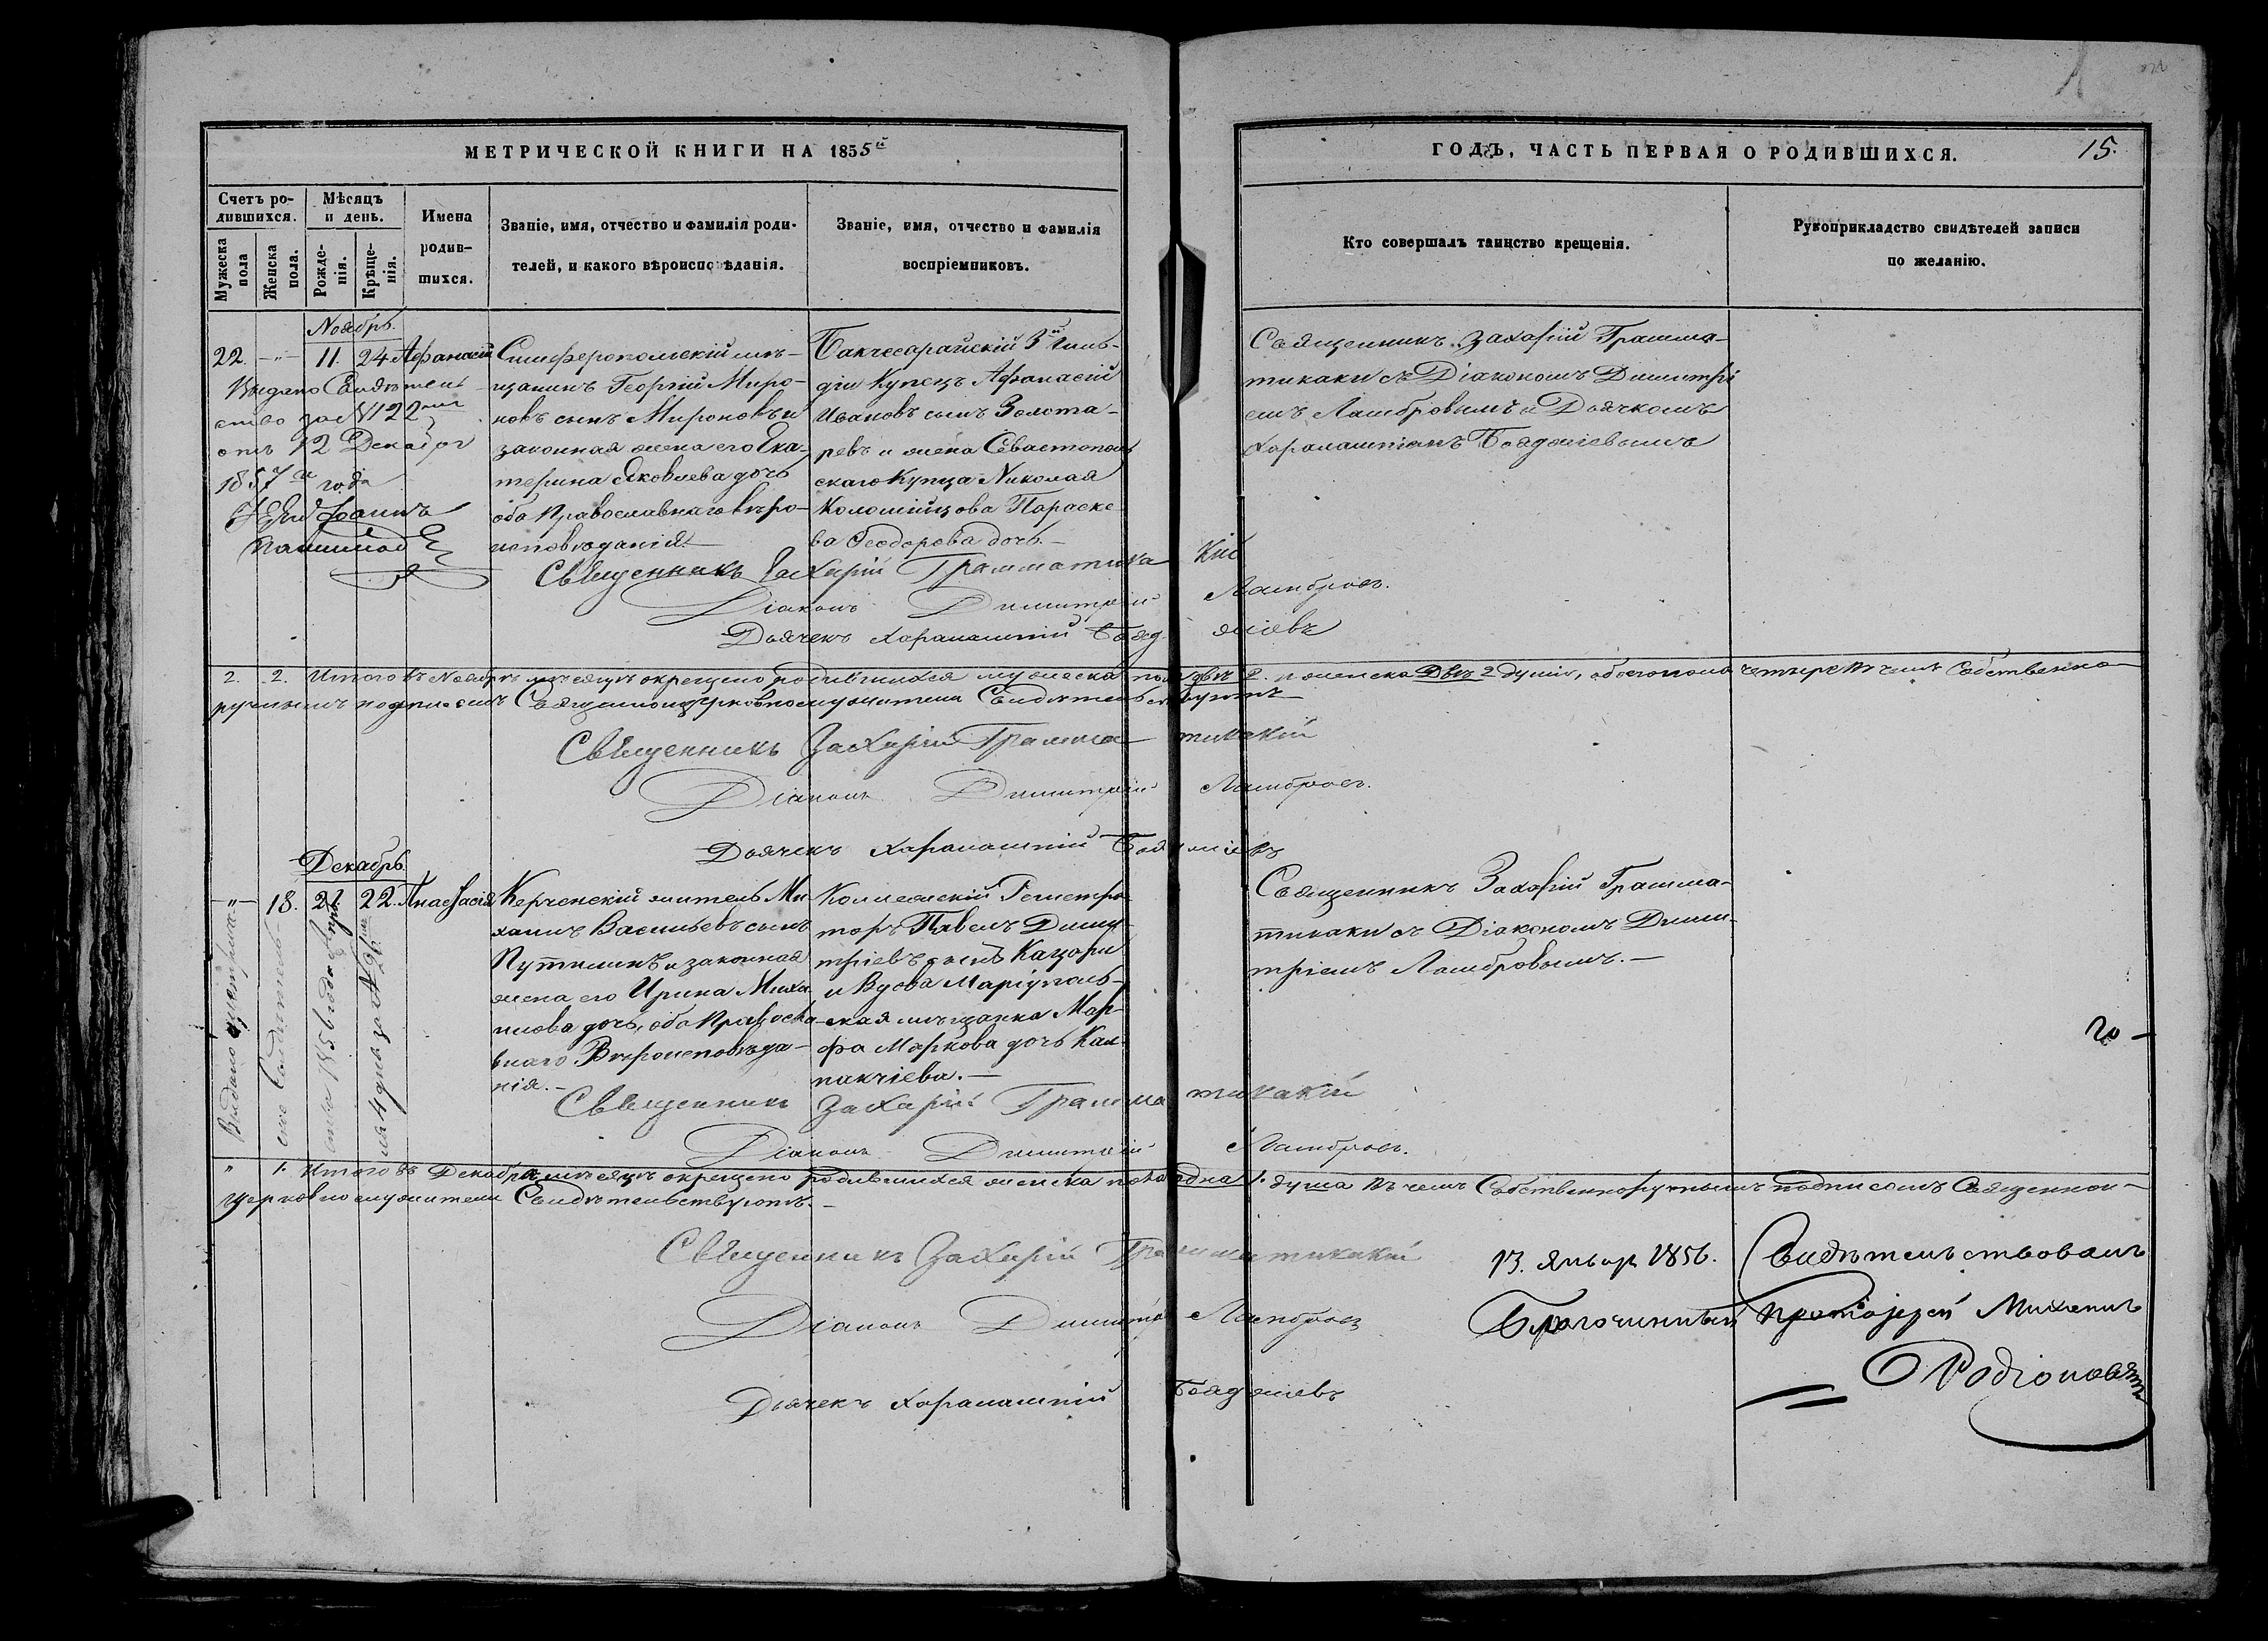 МЕТРИЧЕСКОЙ КНИГИ НА 1855й
ГОДЪ, ЧАСТЬ ПЕРВАЯ О РОДИВШИХСЯ.
15.
Счетъ ро-
дившихся.
Мужеска пола
Женска пола.
Мѣсяцъ
и день.
Рожде-
нія.
Крѣще-
нія.
Имена
родив-
шихся.
Званіе, имя, отчество и фамилія роди-
телей, и какого вѣроисповѣданія.
Званіе, имя, отчество и фамилія
воспріемниковъ.
Кто совершалъ таинство крещенія.
Рукоприкладство свидѣтелей записи
по желанію.
Ноябрь.
22. -"- 11. 24. Афанасій
Симферопольскій мѣ-
щанинъ Георгій Миро-
новъ сынъ Мироновъ и
законная жена его Ека-
терина Яковлева дочь
оба Православнаго вѣро-
исповѣданія.-
Бакчесарайскій 3й Гиль-
діи Купецъ Афанасій
Ивановъ сынъ Золота-
ревъ и жена Севастополь
скаго Купца Николая
Коломійцова Параске
ва Ѳеодорова дочь.-
Священникъ Захарій Грамма-
тикаки съ Діакономъ Димитрі
емъ Ламбровымъ и Дьячкомъ
Харалампіемъ Бояджіевымъ
Выдано Свидѣтель
ство за №122
отъ 12 Декабря
1857 года
Іоаннъ
Священникъ Захарій Грамматикакій
Діаконъ Димитрій Ламбровъ.
Дьячекъ Харалампій Бояджіевъ
2. 2. Итого въ Ноябрѣ мѣсяцѣ окрещено родившихся мужеска пола двѣ 2. и женска Двѣ 2 души, обоего пола четыре въ чемъ Собственно-
ручнымъ подписомъ Священноицерковнослужители Свидѣтельствуютъ
Священникъ Захарій Грамматикакій
Діаконъ Димитрій Ламбровъ.
Дьячекъ Харалампій Бояджіевъ
Декабрь.
-"- 18. 21. 22. Анастасія
Керченскій житель Ми
хаилъ Васильевъ сынъ
Путилинъ и законная
жена его Ирина Миха
илова дочь, оба Правосла-
внаго Вѣроисповѣда-
нія.-
Коллежскій Регистра
торъ Павелъ Дими
тріевъ сынъ Кацари
и Вдова Маріуполь-
ская мѣщанка Мар-
фа Маркова дочь Кал-
пакчіева.-
Священникъ Захарій Грамма-
тикаки съ Діакономъ Дими-
тріемъ Ламбровымъ.-
Выдано
1856 года
4 дня за №
Священникъ Захарій Грамматикакій
Діаконъ Димитрій Ламбровъ.
" 1. Итого въ Декабрѣ мѣсяцѣ окрещено родившихся женска пола одна 1. душа въ чемъ Собственноручнымъ подписомъ Священнои-
церковнослужители Свидѣтельствуютъ.-
Священникъ Захарій Грамматикакій
Діаконъ Димитрій Ламбровъ
Дьячекъ Харалампій Бояджіевъ
13. Январ 1856. Свидѣтельствовалъ
Благочинный Протоіерей Михаилъ
Родіоновъ